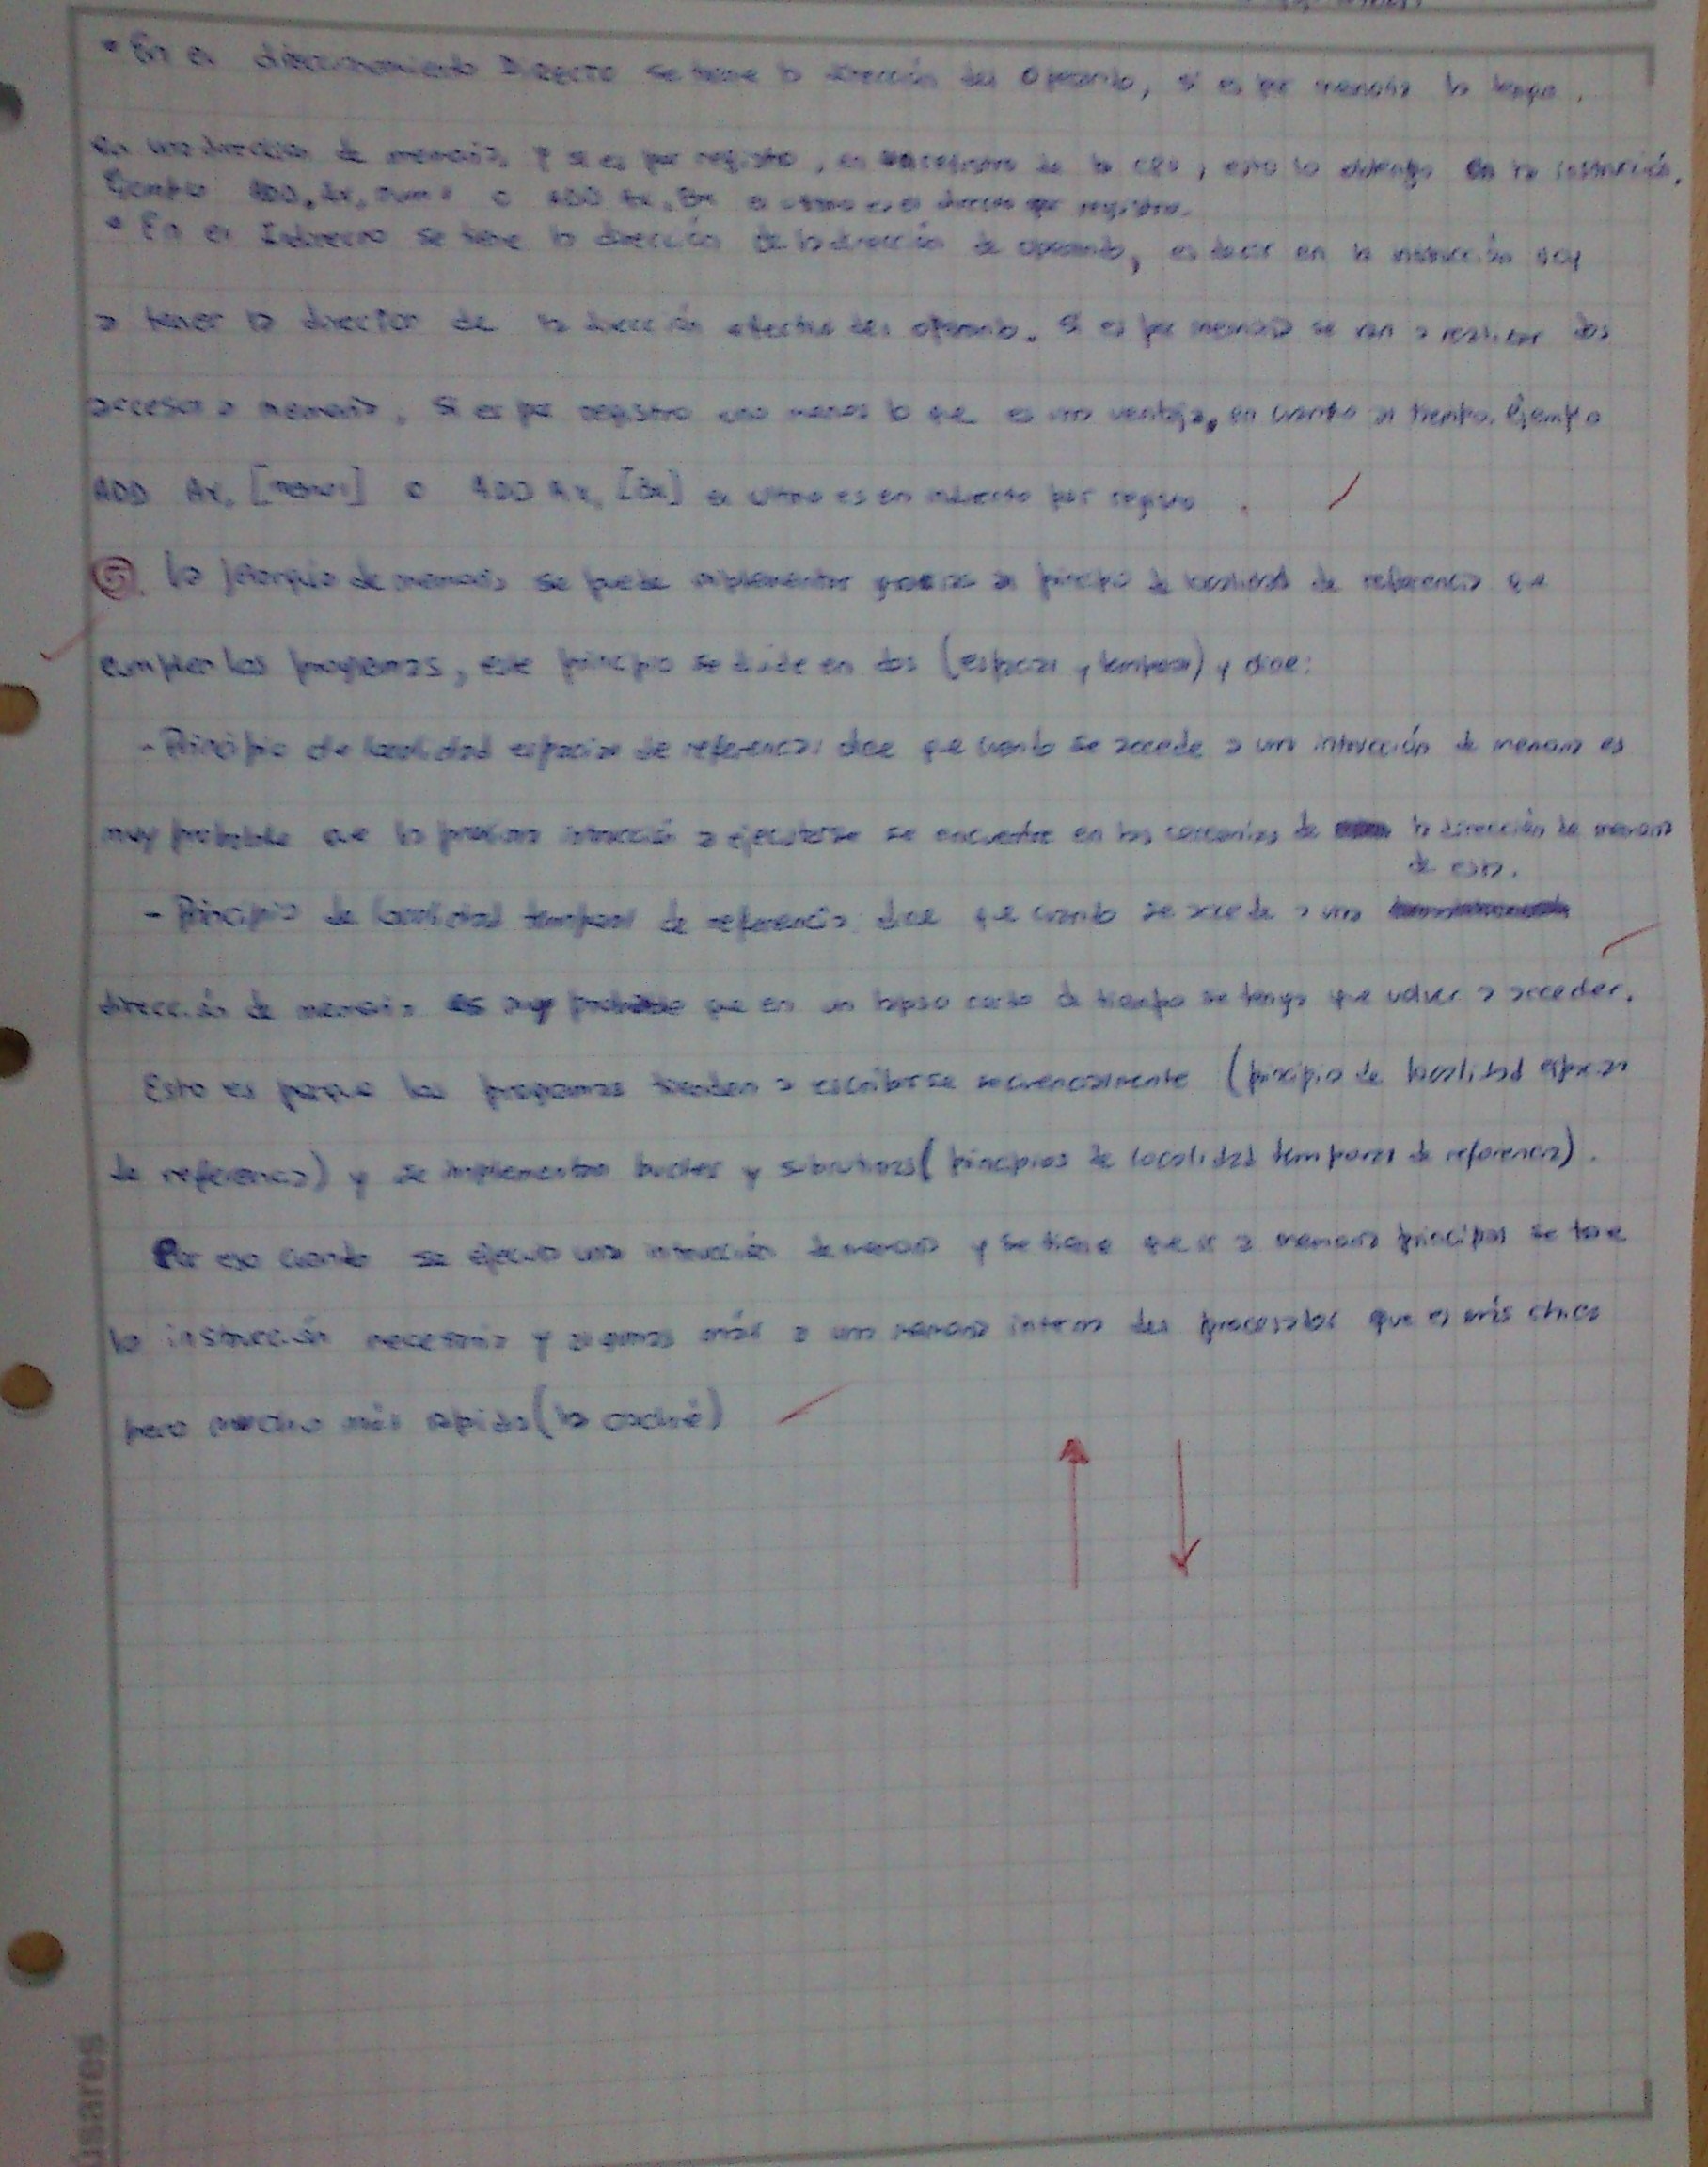 • En el direccionamiento Directo se tiene la dirección del Operando, si es por memoria la tengo
en una dirección de memoria y si es por registro, en un registro de la CPU, esto lo obtengo en la instrucción.
Ejemplo ADD, AX, num1 o ADD AX, BX el ultimo es el directo por registro.
• En el Indirecto se tiene la dirección de la dirección de operando, es decir en la instrucción voy
a tener la dirección de la dirección efectiva del operando. Si es por memoria se van a realizar dos
accesos a memoria, Si es por registro uno menos lo que es una ventaja, en cuanto al tiempo. Ejemplo
ADD AX, [num1] o ADD AX, [BX] el ultimo es en indirecto por registro.
⑤. La jerarquía de memoria se puede implementar gracias al principio de localidad de referencia que
cumplen los programas, este principio se divide en dos (espacial y temporal) y dice:
- Principio de localidad espacial de referencia: dice que cuando se accede a una intrucción de memoria es
muy probable que la proxima intrucción a ejecutarse se encuentre en las cercanías de la dirección de memoria
de esta.
- Principio de localidad temporal de referencia: dice que cuando se accede a una
dirección de memoria es muy probable que en un lapso corto de tiempo se tenga que volver a acceder.
Esto es porque los programas tienden a escribirse secuencialmente (principio de localidad espacial
de referencia) y se implementan bucles y subrutinas (principios de localidad temporal de referencia).
Por eso cuando se ejecuta una intrucción de memoria y se tiene que ir a memoria principal se trae
la instrucción necesaria y algunas más a una memoria interna del procesador que es más chica
pero mucho más rapida (la caché)
úsares